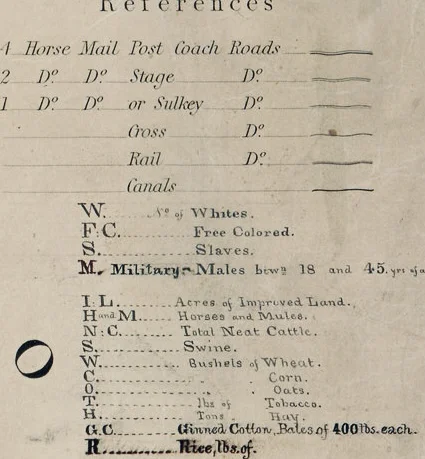 References
4 Horse Mail Post Coach Roads
2 Dº Dº Stage Dº
1 Dº Dº or Sulkey Dº
Cross Dº
Rail Dº
Canals
W. Nº of Whites.
F: C. Free Colored.
S. Slaves.
M. Military:- Males btwn 18 and 45. yrs of a
I: L. Acres of Improved Land.
H and M. Horses and Mules.
N: C. Total Neat Cattle.
S. Swine.
W. Bushels of Wheat.
C. „ „ Corn.
O. „ „ Oats.
T. lbs of Tobacco.
H. Tons „ Hay.
G.C. Ginned Cotton, Bales of 400 lbs. each.
R. Rice, lbs. of.
O